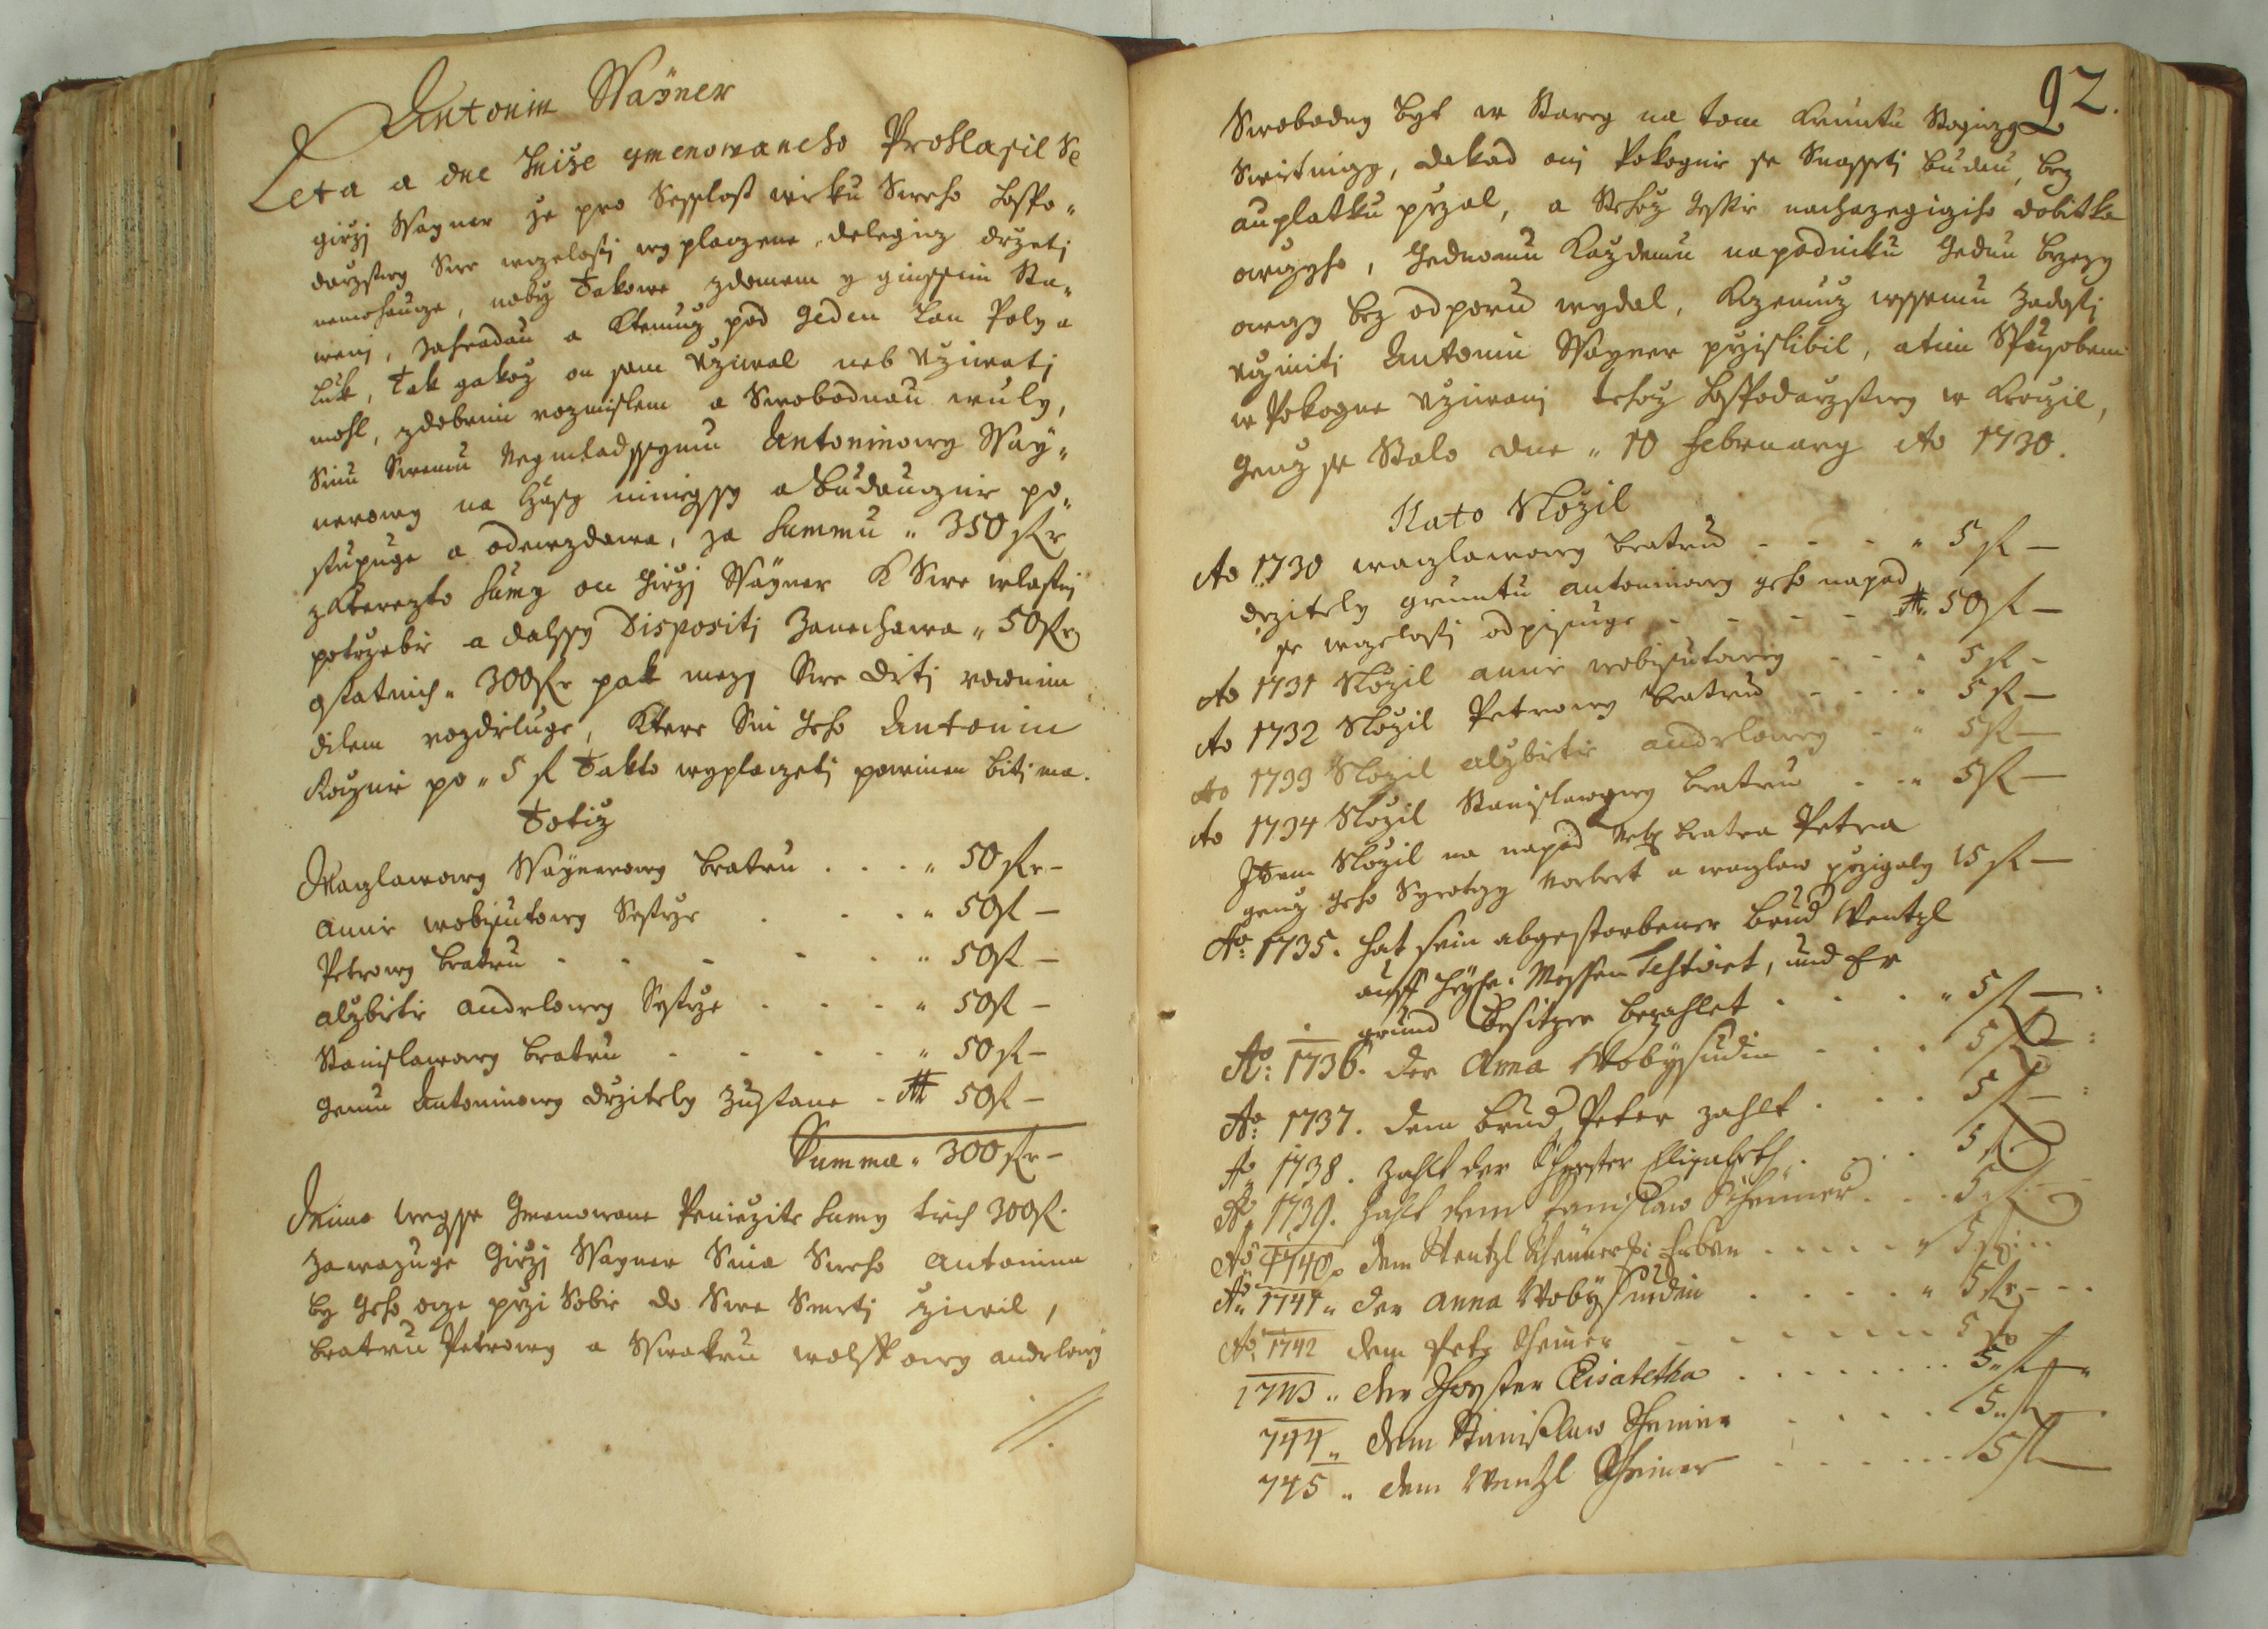 Antonin Wayner
Leta a dne Nuize gmenowaneho Prohlasil Se
girzj Wayner ze pro Sesslost wieku Sweho hospo„
darzstwy Swe wczelosti wyplaczene, delegicz drzetj
nemohaucze, nobrz Takowe zdomem y ginssim Sta„
wenj, zahradau a Ktemuz pod geden Lan Poly a
Luk, Tak gakoz on sam Uziwal neb Uziwatj
mohl, zdobrim rozmislem a Swobodnau wuly,
Sinu Swemu Neymladssymu Antoninowy Way„
nerowy na Czasy niniegssy a budaucznie po„
stupuge a odewzdawa, za Summu „ 350 fl
zkterezto Sumy on Girzj Wayner K Swe wlastnj
potrzebie a dalssy Dispositj Zanechawa „ 50 fl
ostatnich „ 300 fl pak mezy Swe Ditj rownim
dilem rozdieluge, Ktere Sin geho Antonin
Rocznie po „ 5 fl Takto wyplaczetj powinen bitj ma.
Totiz
Waczlawowy Waynerowy bratru . . . „ 50 fl –
Annie wobisutowy Sestrze . . . „ 50 fl –
Petrowy bratru - - - - „ 50 fl –
alzbietie andrlowy Sestrze . . . „ 50 fl –
Stanislawowy bratru - - - „ 50 fl –
gemu Antoninowy drziteli zustane - # 50 fl –
Summa „ 300 fl –
Mimo wegss Gmenowane Peniezite Sumy tiech 300 fl
Zawazuge Girzj Wayner Sina Sweho Antonina
by geho otcze przi Sobie do Swe Smrtj ziwil,
bratru Petrowy a Swakru andrlowy
//.
92.
Swobodny byt w Starey na tom Gruntu Stogiczy
Swietniczy, dokad oni Pokognie se Snassetj budau, bez
auplatku przal, a Tehoz geste nachazegiciho dobitka
owczyho, Gednomu Kazdemu napodniku Gednu brzezy
owczy bez odporu wydal, Kczemuz wssemu Zadostj
ucziniti Antonin Wayner przislibil, atim Spusobem
w Pokogne uziwanj tehoz hospodarzstwy w Kroczil,
genz se Stalo dne „ 10 February Ao 1730.
Nato Slozil
Ao 1730 waczlawowy bratru - - - „ 5 fl –
drziteli gruntu antoninowy geho napad
se wczelosti odpisuge - - - - # 50 fl –
Ao 1731 Slozil annie wobisutowy - - „ 5 fl –
Ao 1732 Slozil Petrowy bratru - - - „ 5 fl –
Ao 1733 Slozil alzbietie andrlowy - „ 5 fl –
Ao 1734 Slozil Stanislawowy bratru - - „ 5 fl –
Item Slozil na napad bratra Petra
genz geho Syrotczy Norbert a waczlaw przigaly 15 fl –
Ao: 1735. hat sein abgestorbener brud Wentzl
auff Heyl. Messen Testirt, und Er
grund Besitzer bezahlet . . . „ 5 fl – :
Ao: 1736. der Anna Wobysudin . . . 5 fl – :
Ao: 1737. dem brud Peter zahlt . . . 5 fl – :
Ao 1738. Zahlt der Schwester Elisabeth . . . 5 fl
Ao 1739. Zahlt dem Stanislaw Scheiner . . . 5 fl -
Ao 1740. dem Wentzl Scheinerschi Erben . . . . . „ 5 fl . .
Ao 1741 „ der Anna Wobysudin . . . . „ 5 fl - - -
Ao 1742 dem Petr Scheiner - - - - - - 5 fl
1743 „ der Schwester Elisabetha . . . . . . . 5 „ fl „
744 „ dem Stanislaw Scheiner . . . . 5 „ fl
745 „ dem Wentzl Scheiner . . . . . . 5 fl